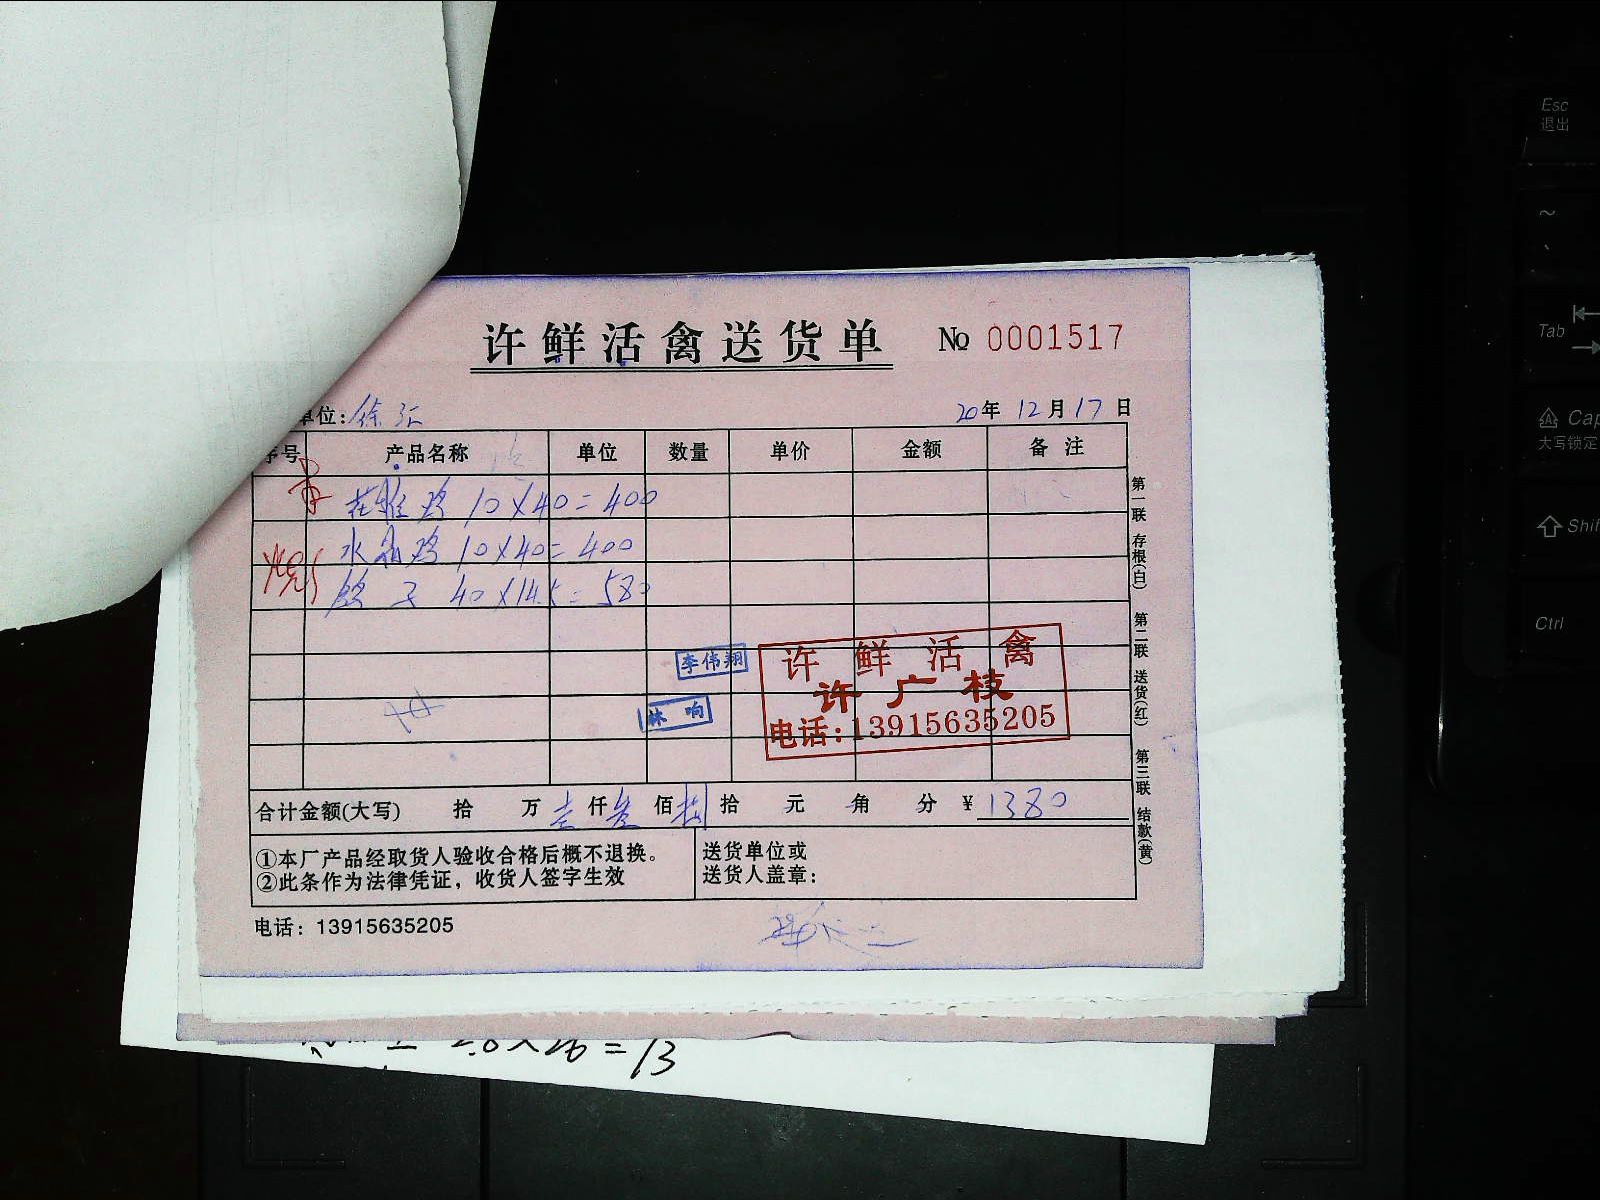 许鲜活禽送货单 № 0001517
单位: 徐汇 20年 12月 17日
序号 产品名称 单位 数量 单价 金额 备注
鸡 10×40=400
水晶鸡 10×40=400
鸽子 40×14.5=580
李伟翔
林响
许鲜活禽
许广枝
电话:13915635205
合计金额(大写) 拾 万 壹 仟 叁 佰 捌 拾 元 角 分 ¥ 1380
①本厂产品经取货人验收合格后概不退换。
②此条作为法律凭证，收货人签字生效
送货单位或
送货人盖章：
电话：13915635205
第一联 存根(白)
第二联 送货(红)
第三联 结款(黄)
2.6×26=13
Esc
退出
~
Tab
Cap
大写锁定
Shif
Ctrl